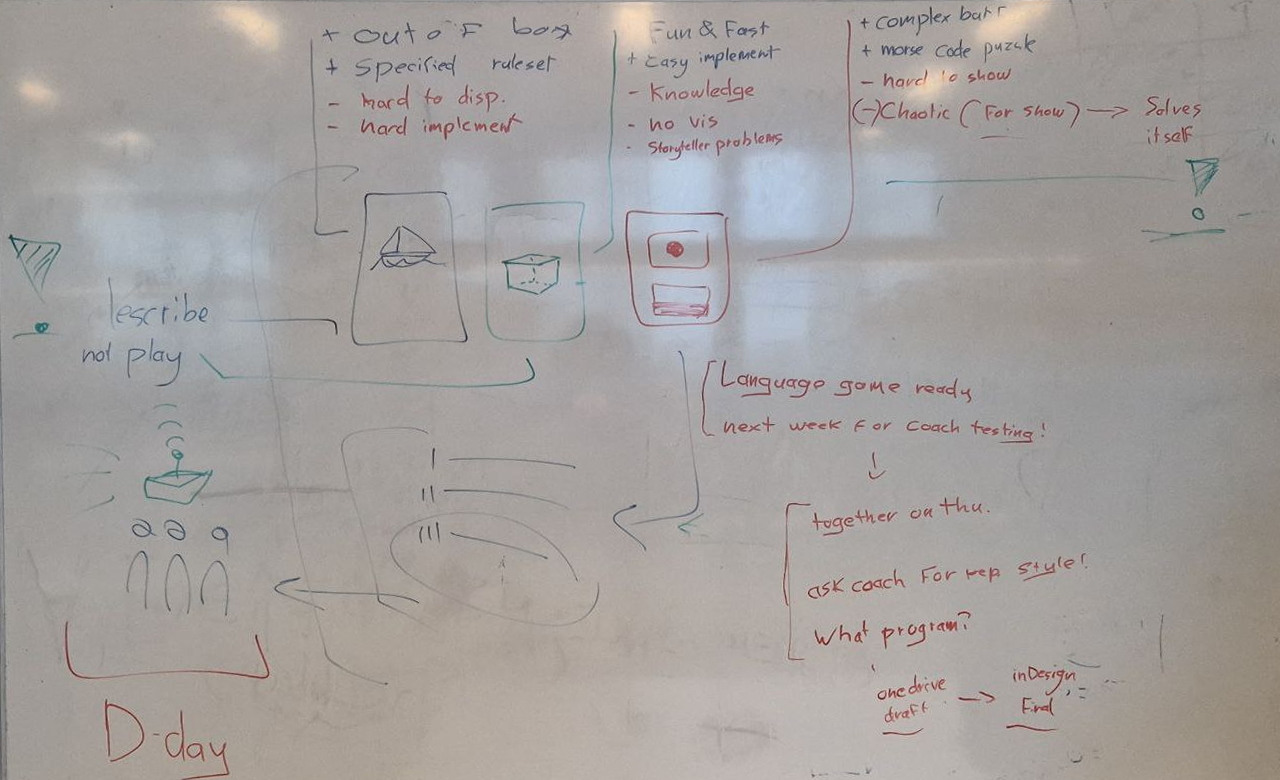 + out of box
+ Specified ruleset
- hard to disp.
- hard implement
Fun & Fast
+ Easy implement
- Knowledge
- no vis
- Storyteller problems
+ complex but
+ morse code puzzle
- hard to show
(-) Chaotic (For show) → Solves
itself
describe
not play
Language game ready
next week For coach testing!
I
II
III
together on thu.
ask coach For rep style!
What program?
onedrive
draft
→ inDesign
Final
D-day